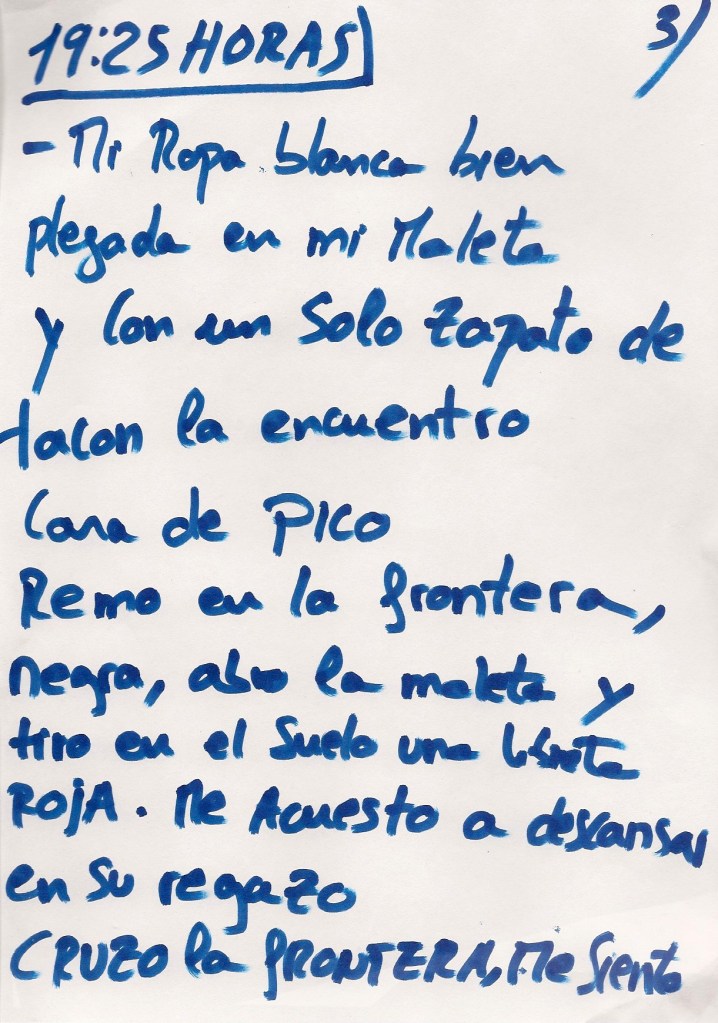 19:25 HORAS 3/
- Mi Ropa blanca bien
plegada en mi Maleta
y Con un Solo Zapato de
tacon la encuentro
Cara de PICO
Remo en la frontera,
negra, abro la maleta y
tiro en el Suelo una libreta
ROJA. Me Acuesto a descansar
en su regazo
CRUZO la fRONTERA, Me Siento